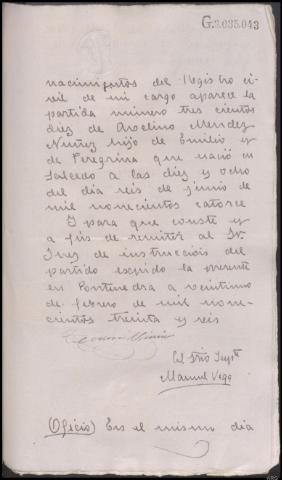 G.2.035.043
nacimientos del Registro ci-
vil de mi cargo aparece la
partida número tres cientos
diez de Avelino Mendez
Nuñez hijo de Emilio y
de Peregrina que nació en
Salcedo a las diez y ocho
del dia seis de junio de
mil novecientos catorce
I para que conste y
a fis de remitir al Sr.
Juez de instrucciós del
partido expido la presente
en Pontevedra a veintiuno
de febrero de mil nove-
cientos treinta y seis
El
Manuel Vega
(Oficio) En el mismo dia